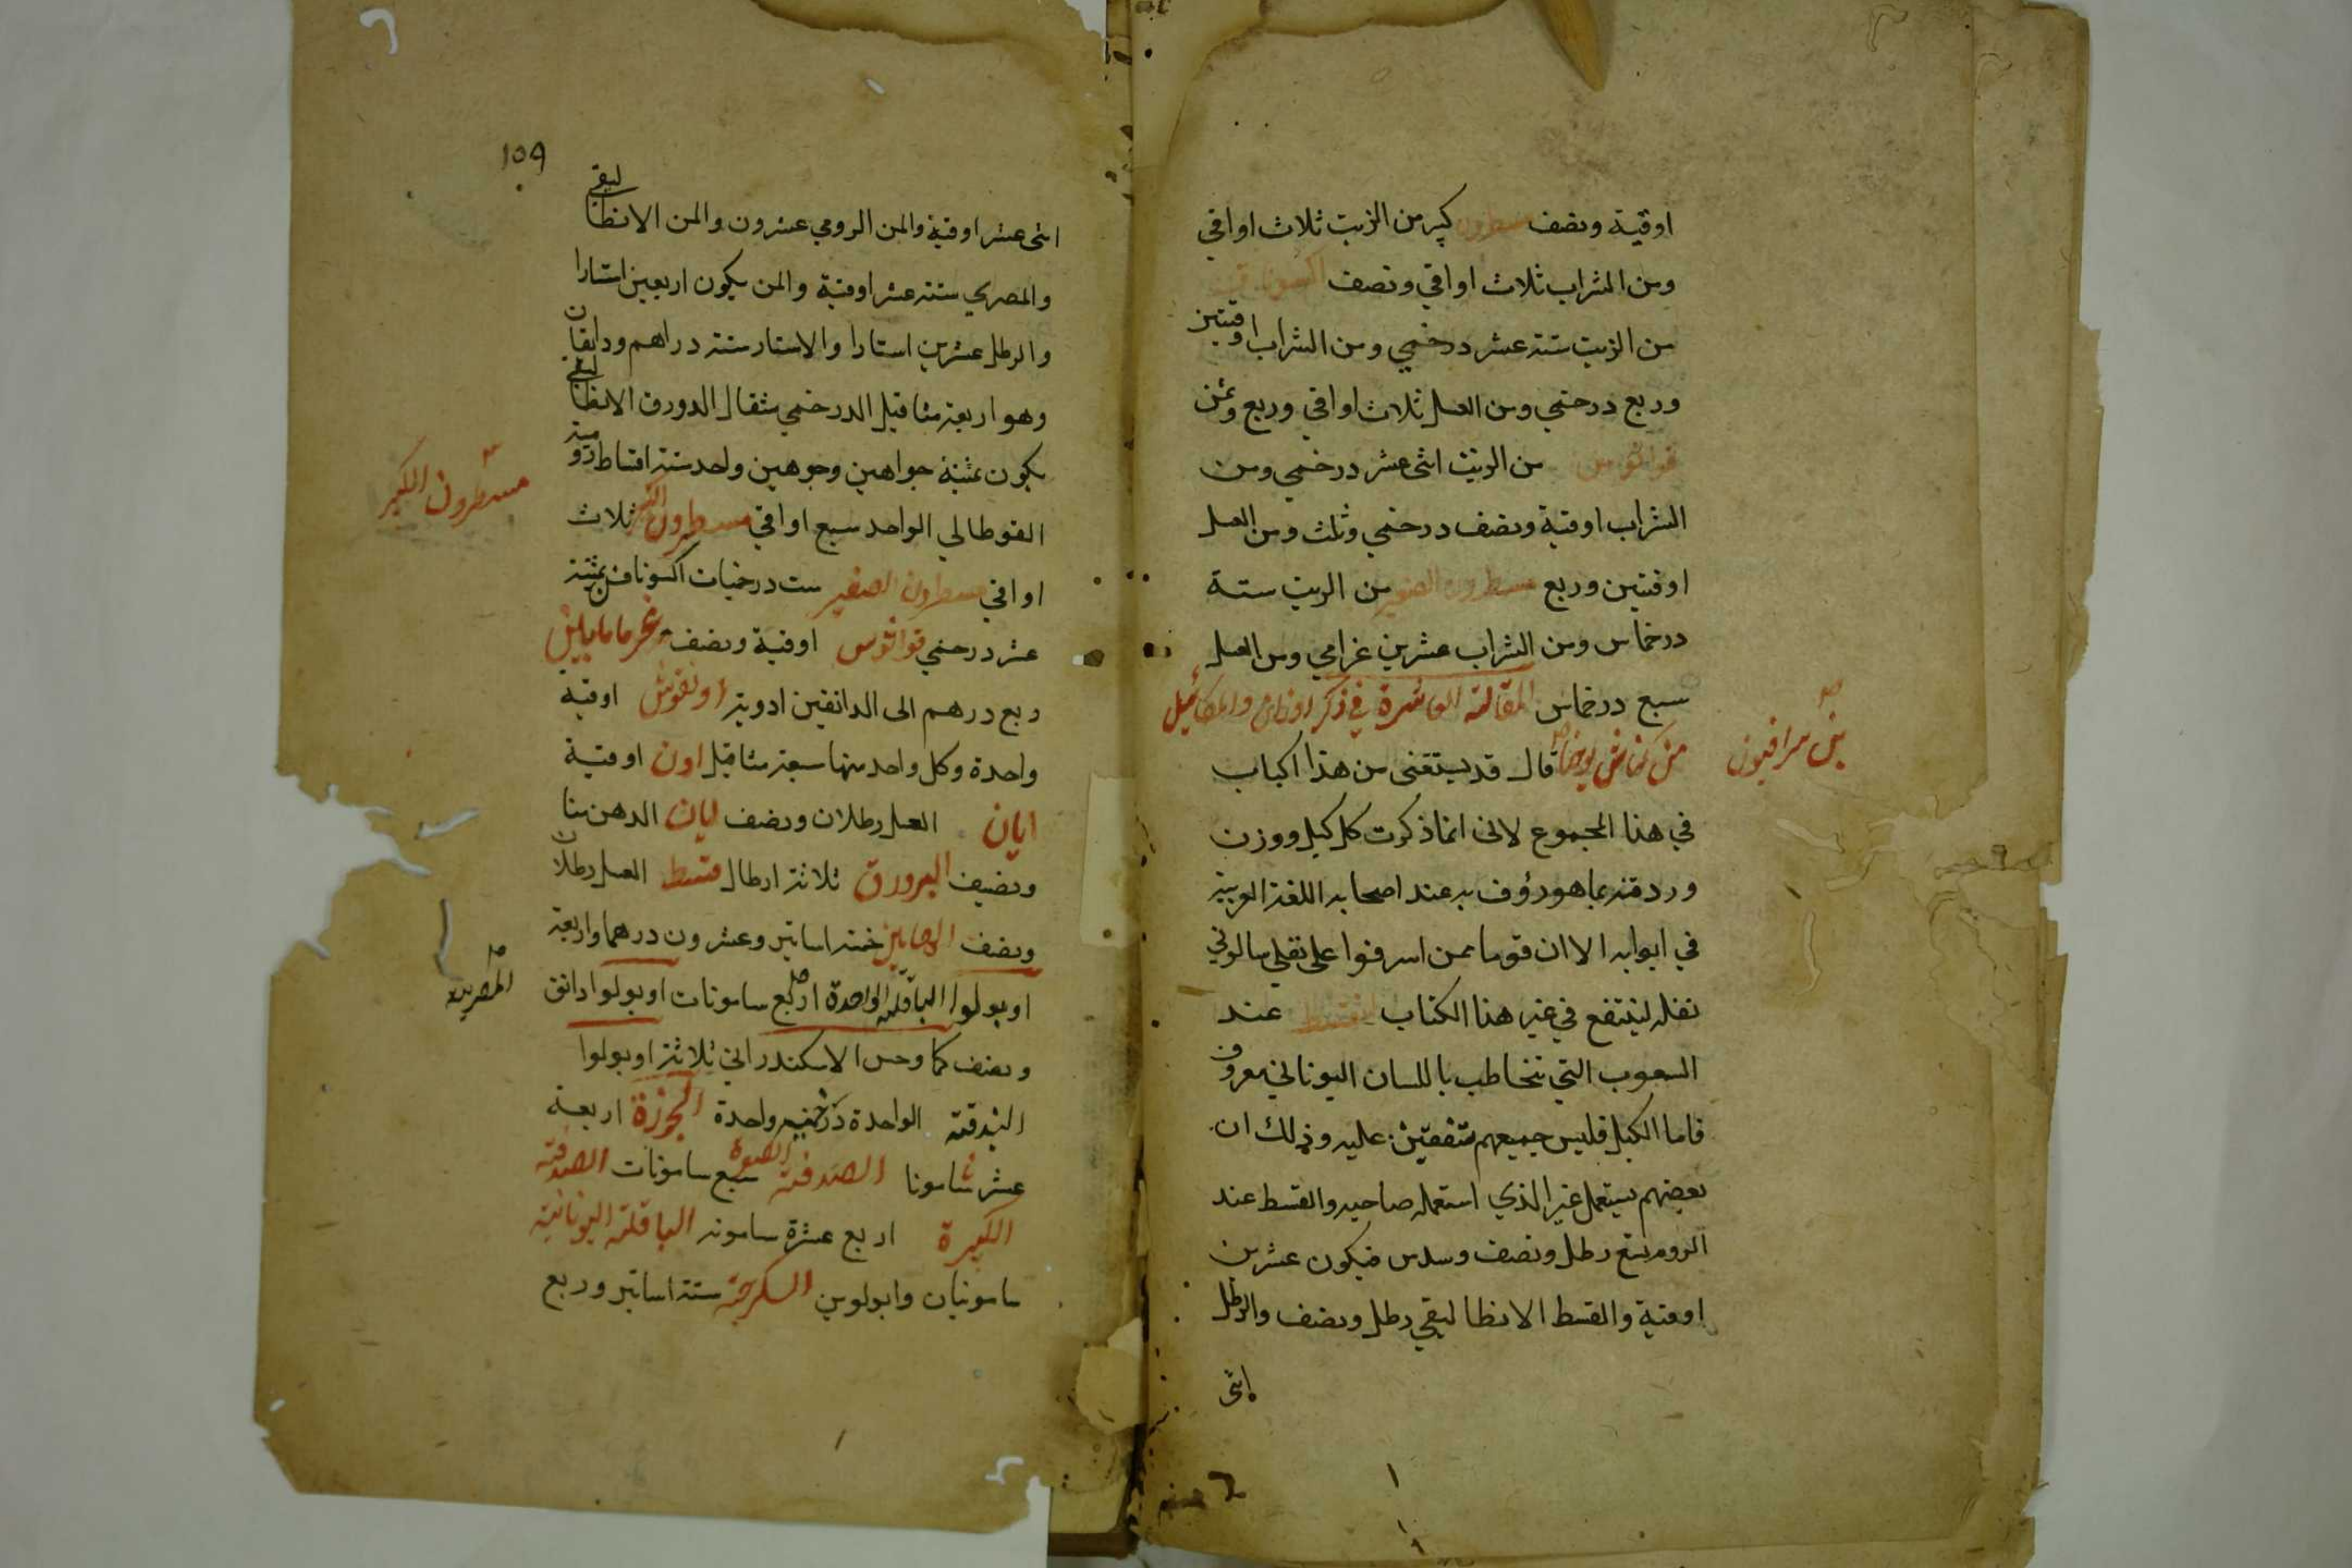 اوقية ونصف مسطرون كبير من الزيت ثلاث اواقي
ومن الشراب ثلاث اواقي ونصف اكسونافن
من الزيت ستة عشر درخمي ومن الشراب اوقيتين
وربع درخمي ومن العسل ثلاث اواقي وربع وثمن
قواثوس من الزيت اثنى عشر درخمي ومن
الشراب اوقية ونصف درخمي وثلث ومن العسل
اوقيتين وربع مسطرون الصغير من الزيت ستة
درخماس ومن الشراب عشرين غرامي ومن العسل
سبع درخماس المقالة العاشرة في ذكر اوزان والمكائيل
من كناش يوحنا قال قد يستغنى من هذا الباب
بن سرافيون
في هذا المجموع لاني انما ذكرت كل كيل ووزن
ورد منه بما هو معروف به عند اصحابه اللغة العربية
في ابوابه الا ان قوما ممن اسرفوا على نقلي سالوني
نقله لينتفع في غير هذا الكتاب القسط عند
الشعوب التي تتخاطب باللسان اليوناني معروف
فاما الكيل فليس جميعهم متفقين عليه وذلك ان
بعضهم يستعمل غير الذي استعمله صاحبه والقسط عند
الروم يسع رطل ونصف وسدس فيكون عشرين
اوقية والقسط الانطاليقي رطل ونصف والرطل
اثنى
١٥٩
اثنى عشر اوقية والمن الرومي عشرون والمن الانطاليقي
والمصري ستة عشر اوقية والمن يكون اربعين استارا
والرطل عشرين استارا والاستار ستة دراهم ودانقان
وهو اربعة مثاقيل الدرخمي مثقال الدورق الانطاليقي
يكون ثمنية جواهين وجوهين واحد ستة اقساط رومية
القوطالي الواحد سبع اواقي مسطرون الكبير ثلاث
مسطرون الكبير
اواقي مسطرون الصغير ست درخيات اكسونافن ثمنية
عشر درخمي قواثوس اوقية ونصف غرما مايلين
ربع درهم الى الدانقين ادوية اونقوش اوقية
واحدة وكل واحد منها سبعة مثاقيل اون اوقية
ايان العسل رطلان ونصف ايان الدهن منا
ونصف البرورق ثلاثة ارطال قسط العسل رطلان
ونصف خمسة اساتير وعشرون درهما واربعة
اوبولوا الباقلة الواحدة اربع سامونات اوبولوا دانق
المصرية
ونصف الاسكندراني ثلاثة اوبولوا
البندقة الواحدة درخمي واحدة الجوزة اربعة
عشر شامونا الصدفة الصغيرة سبع سامونات الصدفة
الكبيرة اربع عشرة سامونه الباقلة اليونانية
سامونيان وابولوين السكرجة ستة اساتير وربع